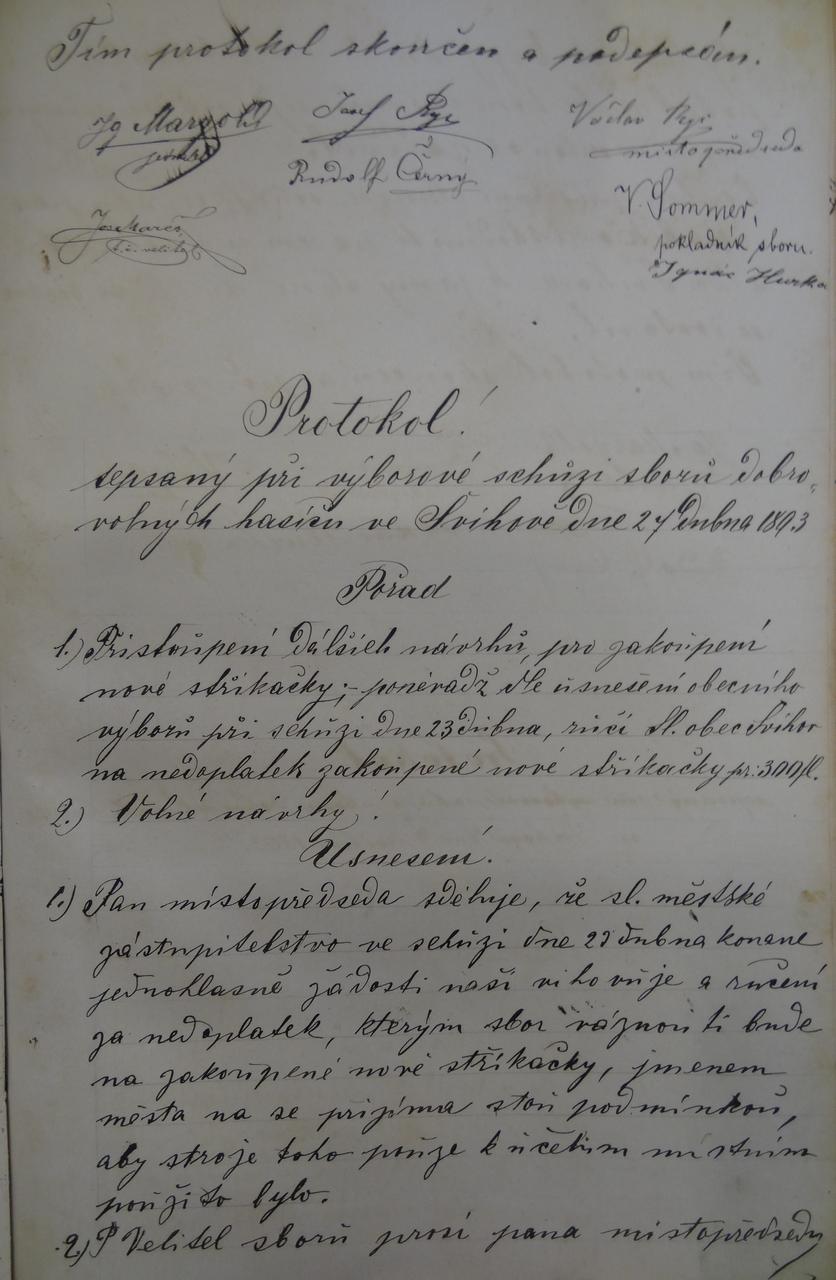 Tím protokol skončen a podepsán.
Jg Margold Josef Rys Václav Rys
místopředseda
Rudolf Černý
V. Sommer,
Jos Mareš
pokladník sboru.
t.č. velitel
Ignác Hurka
Protokol!
sepsaný při výborové schůzi sborů dobro„
volných hasičů ve Švihově dne 27 dubna 1893
Pořad
1.) Přistoupení dalších návrhů, pro zakoupení
nové stříkačky;- poněvadž dle usnešení obecního
výborů při schůzi dne 23 dubna, ručí sl. obec Švihov
na nedoplatek zakoupené nové stříkačky pr: 300 fl.
2.) Volné návrhy!
Usnesení.
1.) Pan místopředseda sděluje, že sl. městské
zástupitelstvo ve schůzi dne 23 dubna konane
jednohlasně žádosti naší vihovuje a ručení
za nedoplatek, kterým sbor váznouti bude
na zakoupené nové stříkačky, jmenem
města na se přijíma stou podmínkou,
aby stroje toho pouze k účelům místním
použito bylo.
2.) P Velitel sborů prosí pana místopředsedu